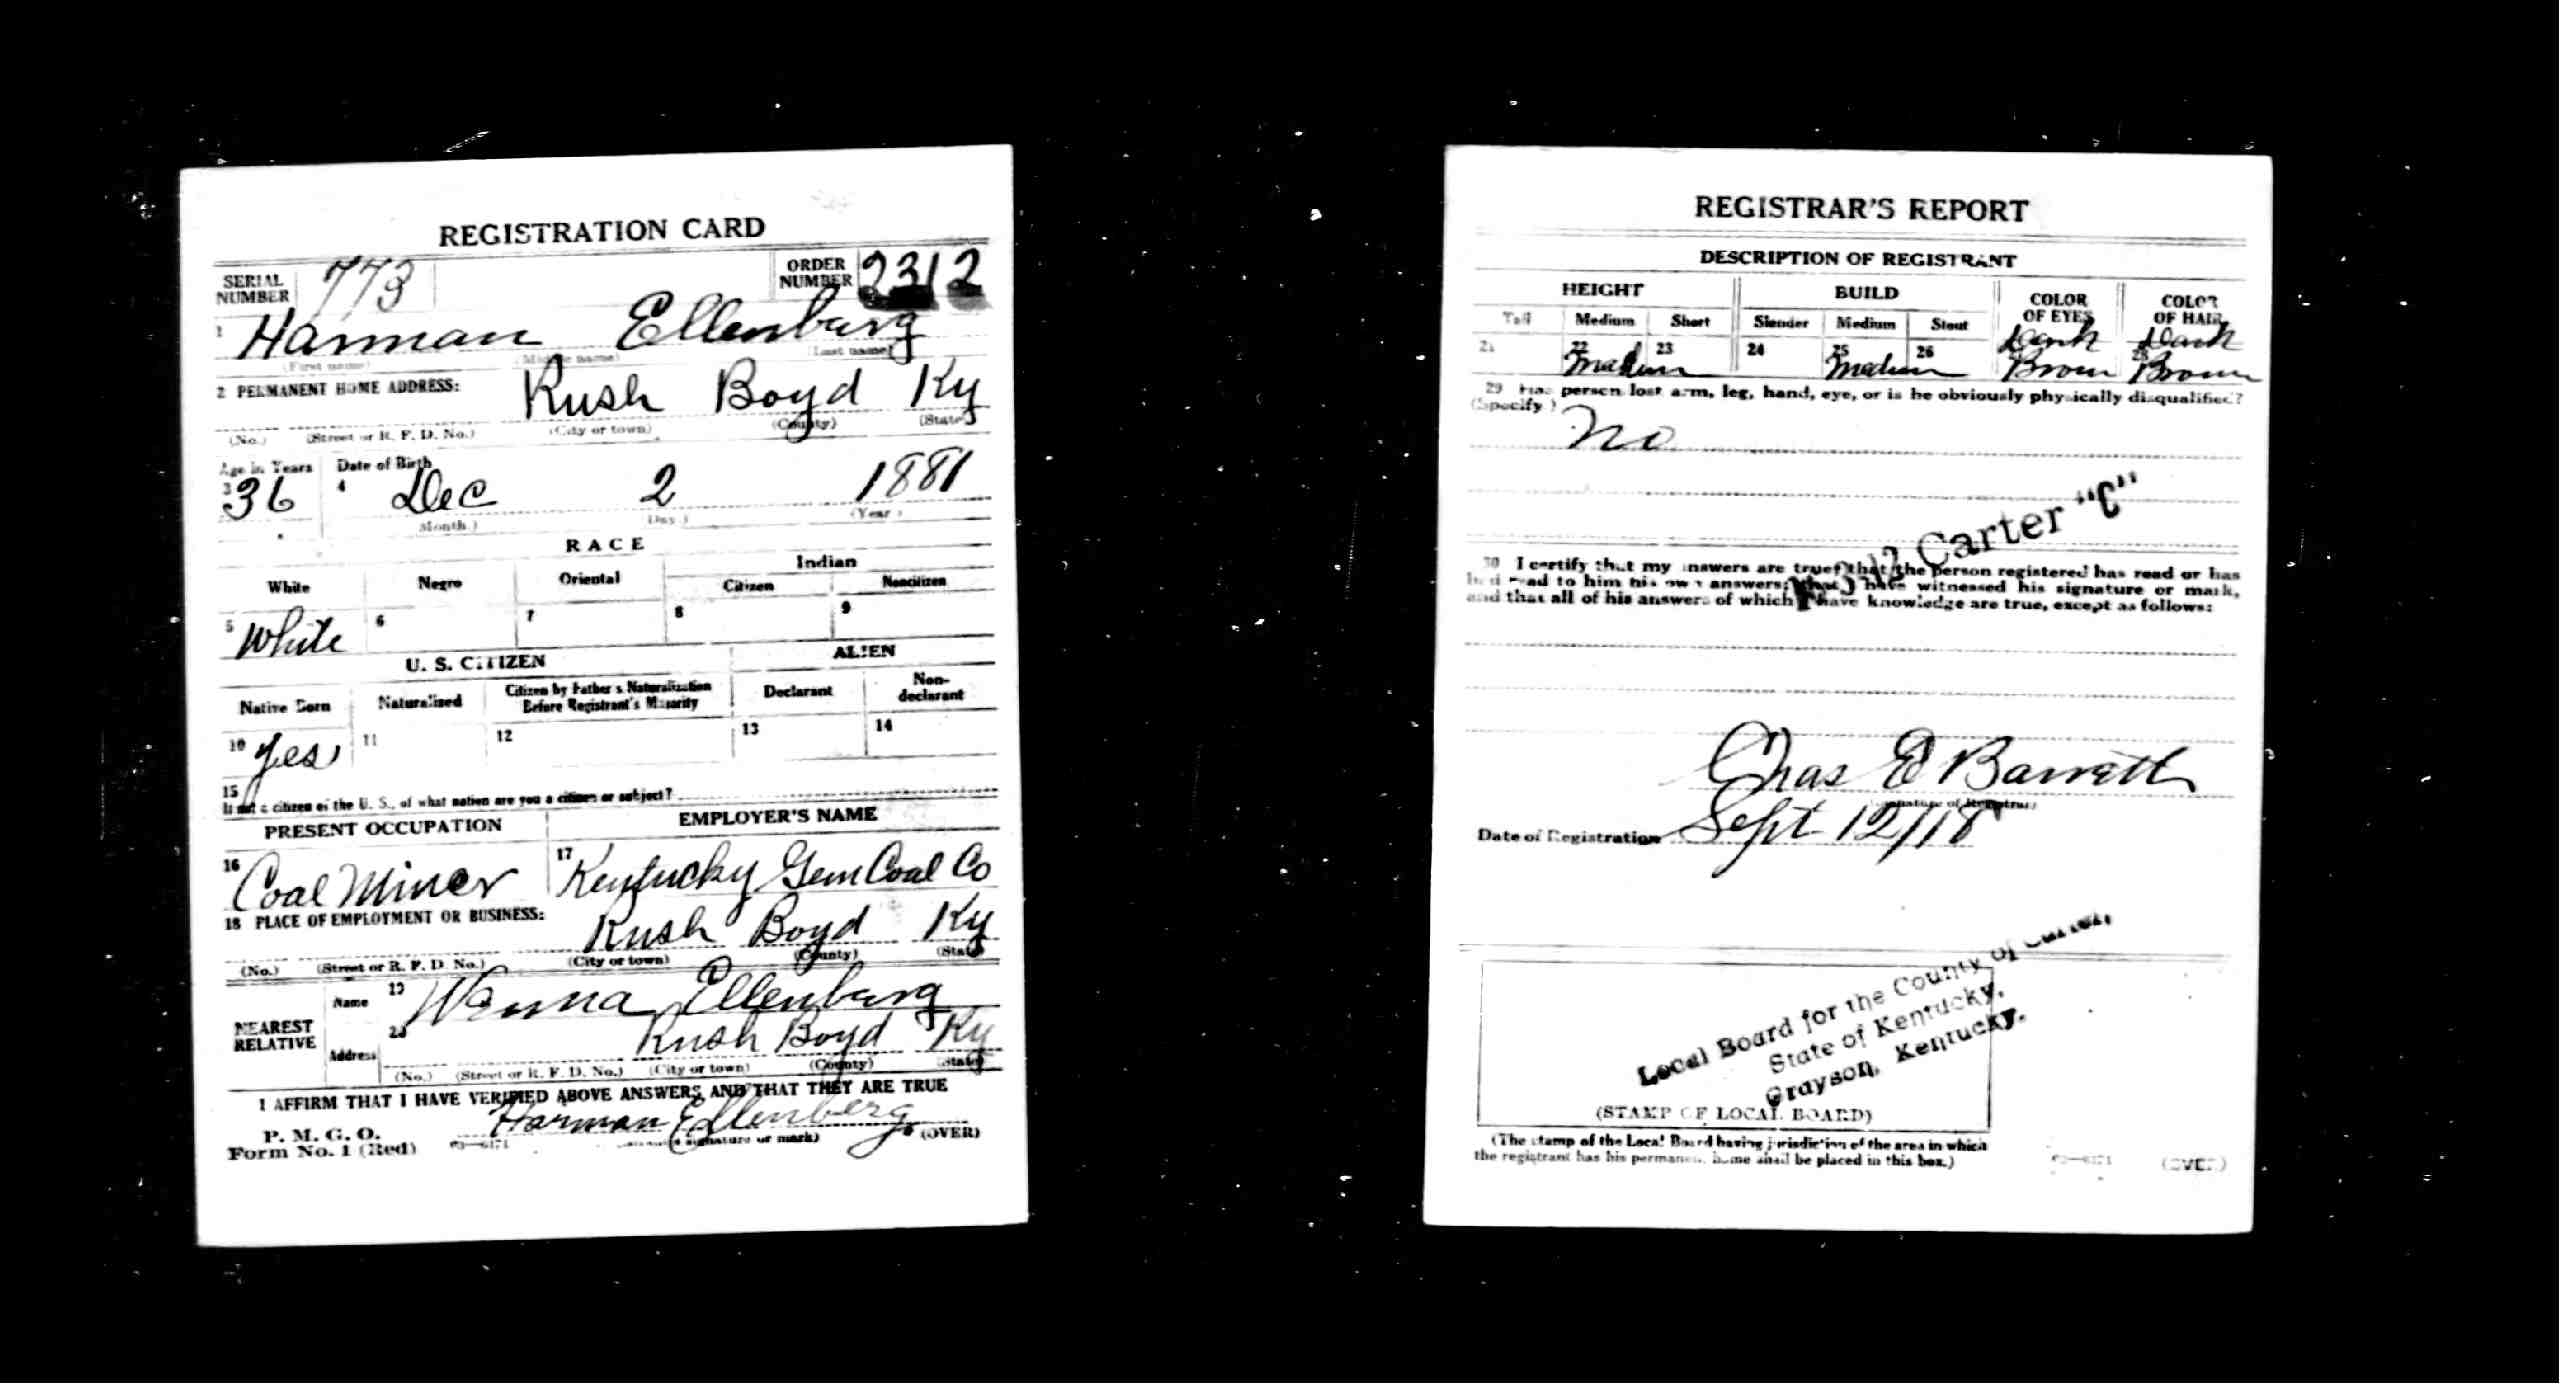 REGISTRATION CARD
SERIAL NUMBER 773 ORDER NUMBER 2312
1 Harman Ellenburg
(First name) (Middle name) (Last name)
2 PERMANENT HOME ADDRESS: Rush Boyd Ky
(No.) (Street or R. F. D. No.) (City or town) (County) (State)
Age in Years Date of Birth
3 36 4 Dec 2 1881
(Month.) (Day.) (Year)
RACE
White Negro Oriental Indian
Citizen Noncitizen
5 White 6 7 8 9
U. S. CITIZEN ALIEN
Native Born Naturalized Citizen by Father's Naturalization Before Registrant's Majority Declarant Non-declarant
10 Yes 11 12 13 14
15
If not a citizen of the U. S., of what nation are you a citizen or subject?
PRESENT OCCUPATION EMPLOYER'S NAME
16 Coal Miner 17 Kentucky Gem Coal Co
18 PLACE OF EMPLOYMENT OR BUSINESS: Rush Boyd Ky
(No.) (Street or R. F. D. No.) (City or town) (County) (State)
NEAREST RELATIVE Name 19 Ellenburg
Address 20 Rush Boyd Ky
(No.) (Street or R. F. D. No.) (City or town) (County) (State)
I AFFIRM THAT I HAVE VERIFIED ABOVE ANSWERS AND THAT THEY ARE TRUE
P. M. G. O.
Form No. 1 (Red) 03—6171 Harman Ellenberg
(Registrant's signature or mark) (OVER)
REGISTRAR'S REPORT
DESCRIPTION OF REGISTRANT
HEIGHT BUILD COLOR OF EYES COLOR OF HAIR
Tall Medium Short Slender Medium Stout
21 22 Medium 23 24 25 Medium 26 Dark Brown 28 Dark Brown
29 Has person lost arm, leg, hand, eye, or is he obviously physically disqualified?
(Specify.)
No
Carter "C"
30 I certify that my answers are true; that the person registered has read or has
had read to him his own answers; that I have witnessed his signature or mark,
and that all of his answers of which I have knowledge are true, except as follows:
Chas E Barrett
(Signature of Registrar)
Date of Registration Sept 12/18
Local Board for the County of Carter,
State of Kentucky,
Grayson, Kentucky.
(STAMP OF LOCAL BOARD)
(The stamp of the Local Board having jurisdiction of the area in which
the registrant has his permanent home shall be placed in this box.)
03—6171 (OVER)